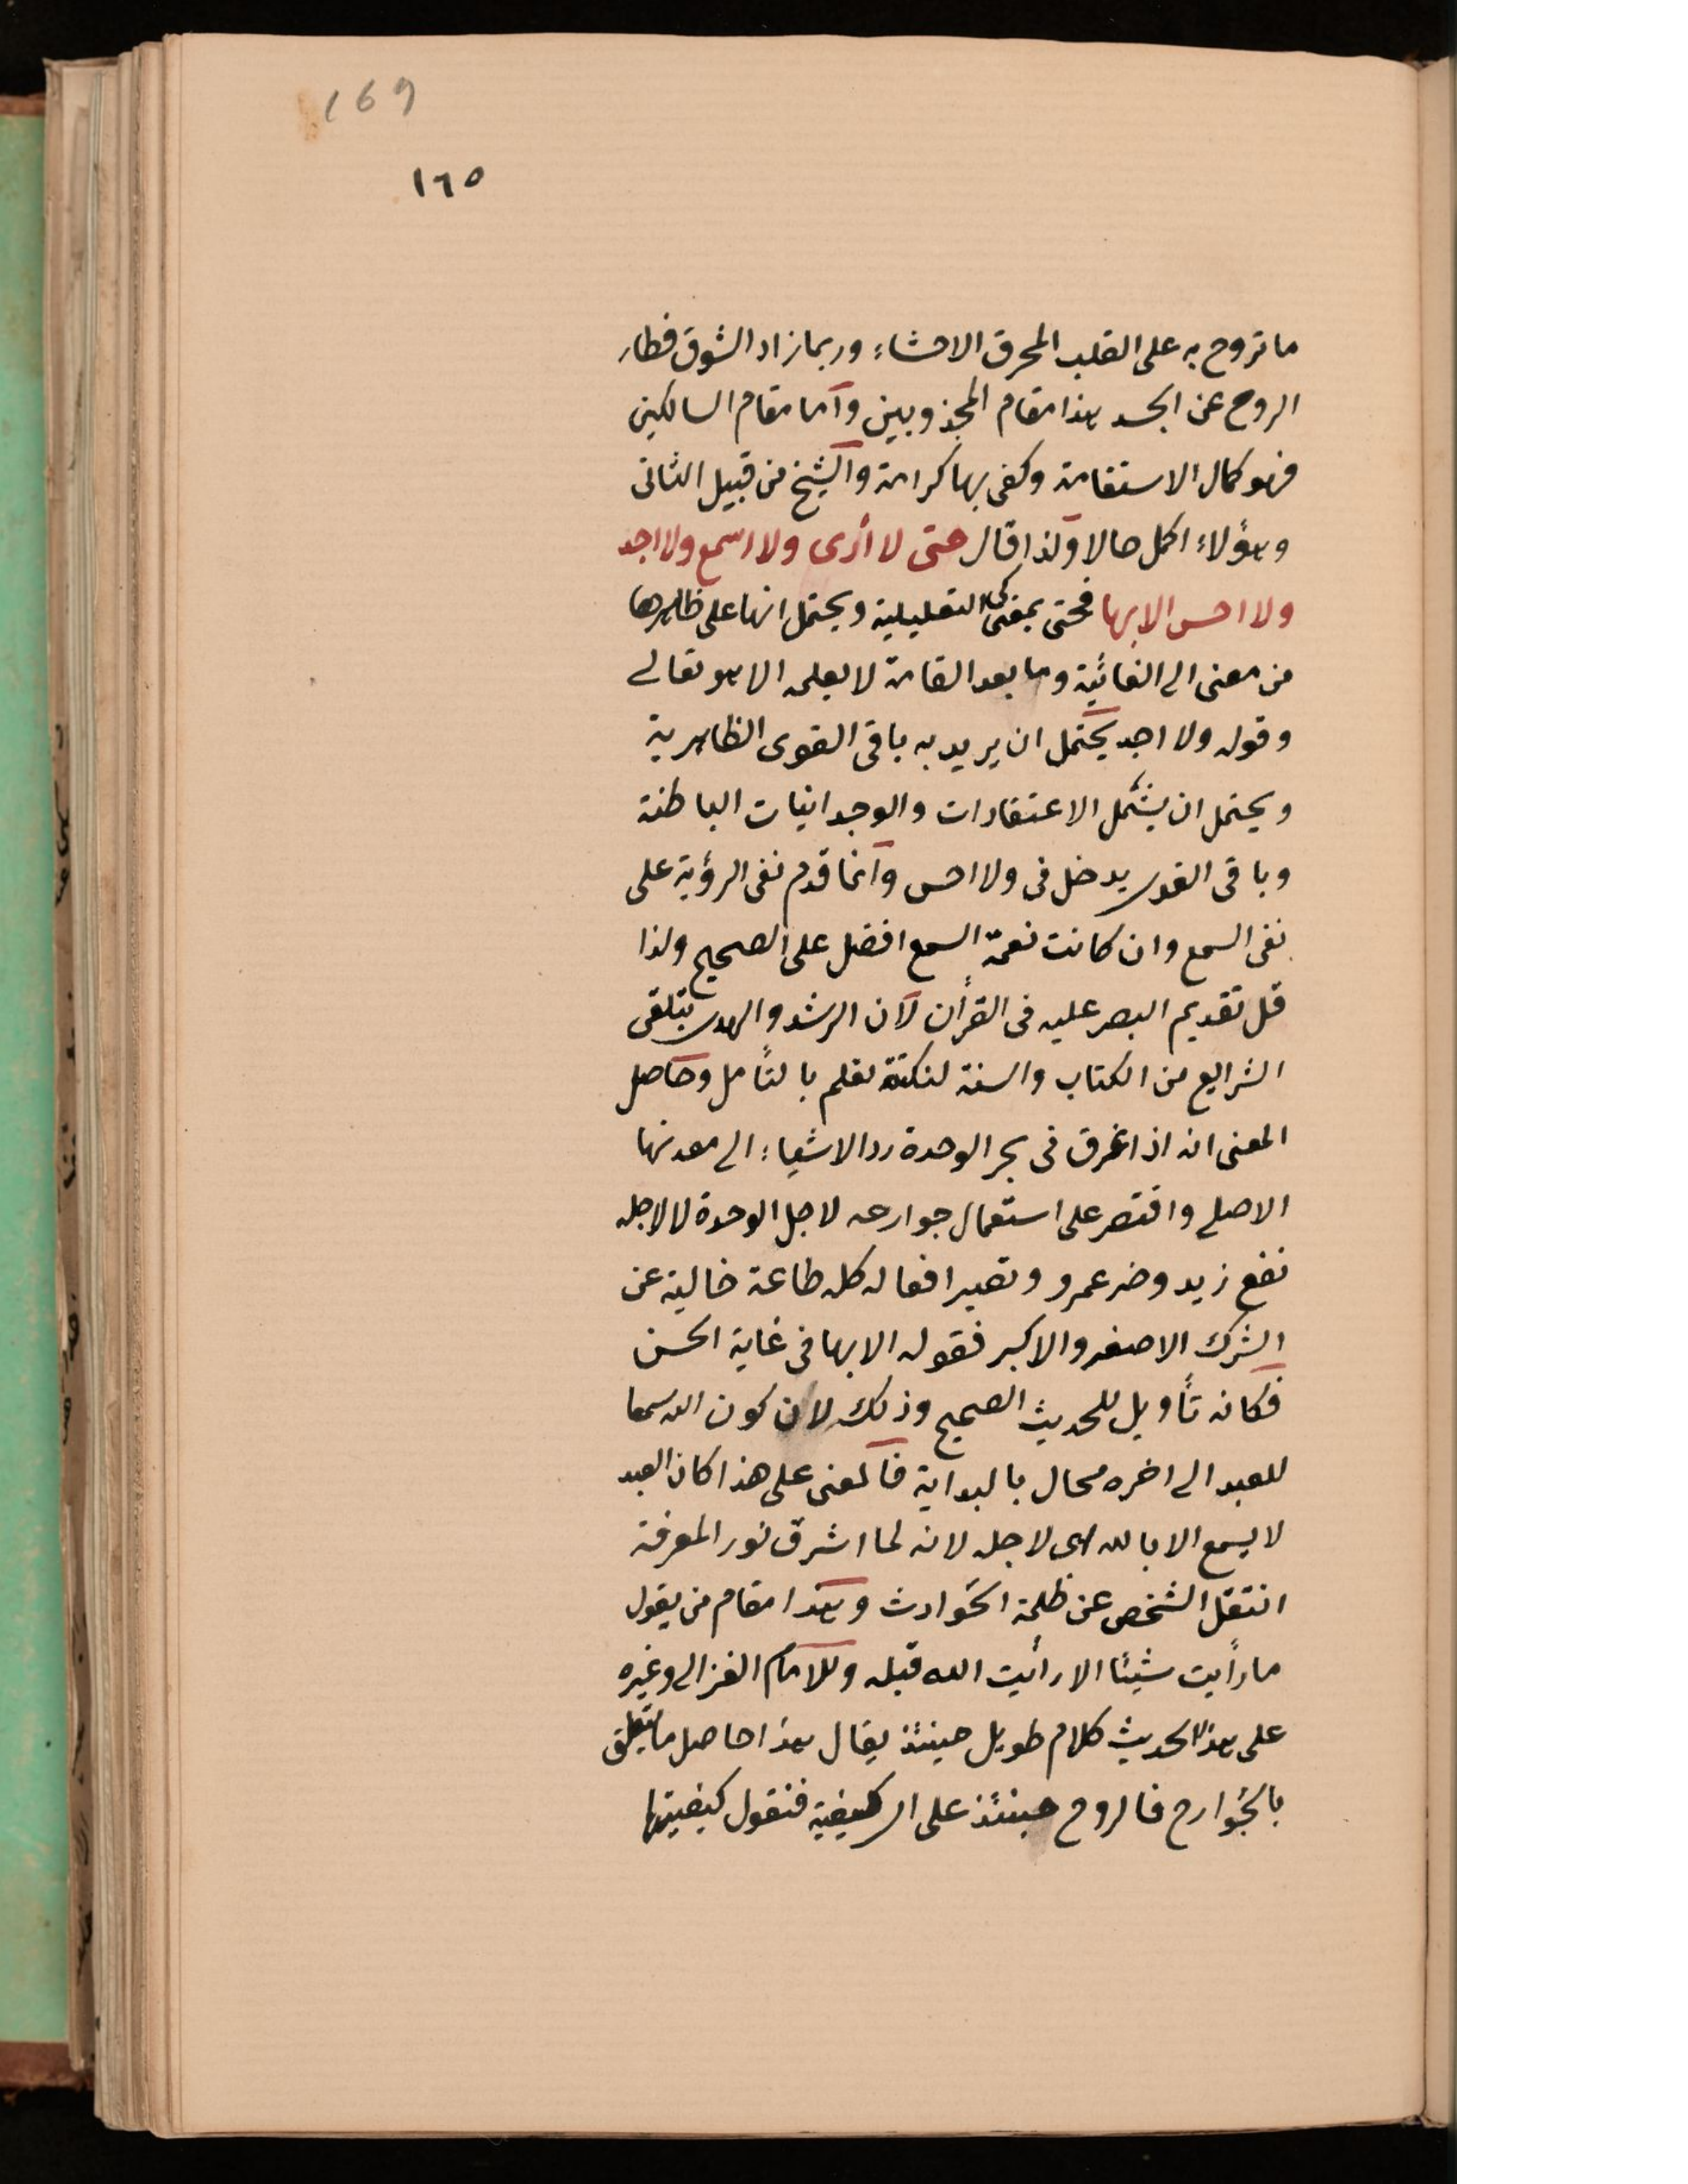 169
١٦٥
ما تروح به على القلب المحرق الاحشاء وربما زاد الشوق فطار
الروح عن الجسد هذا مقام المجذوبين وأما مقام السالكين
فهو كمال الاستقامة وكفى بها كرامة والشيخ من قبيل الثانى
وهؤلاء اكمل حالا ولذا قال حتى لا أرى ولا اسمع ولا اجد
ولا احس الا بها فحتى بمعنى كى التعليلية ويحتمل انها على ظاهرها
من معنى الى الغائية وما بعد القامة لا يعلمه الا هو تعالى
وقوله ولا اجد يحتمل ان يريد به باقى القوى الظاهرية
ويحتمل ان يشمل الاعتقادات والوجدانيات الباطنة
وباقى القوى يدخل فى ولا احس وانما قدم نفى الرؤية على
نفى السمع وان كانت نعمة السمع افضل على الصحيح ولذا
قل تقديم البصر عليه فى القرأن لان الرشد والهدى بتلقى
الشرايع من الكتاب والسنة لنكتة تعلم بالتأمل وحاصل
المعنى انه اذا غرق فى بحر الوحدة رد الاشياء الى معدنها
الاصلى واقتصر على استعمال جوارحه لاجل الوحدة لا لاجله
نفع زيد وضر عمرو وتصير افعاله كله طاعة خالية عن
الشرك الاصغر والاكبر فقوله الا بها فى غاية الحسن
فكانه تأويل للحديث الصحيح وذلك لان كون الله سمعا
للعبد الى اخره محال بالبداية فالمعنى على هذا كان العبد
لا يسمع الا بالله اى لاجله لانه لما اشرق نور المعرفة
انتقل الشخص عن ظلمة الحوادث وهذا مقام من يقول
ما رأيت شيئا الا رأيت الله قبله وللامام الغزالى وغيره
على هذا الحديث كلام طويل حينئذ يقال هذا حاصل ما يتعلق
بالجوارح فالروح حينئذ على اى كيفية فنقول كيفيتها